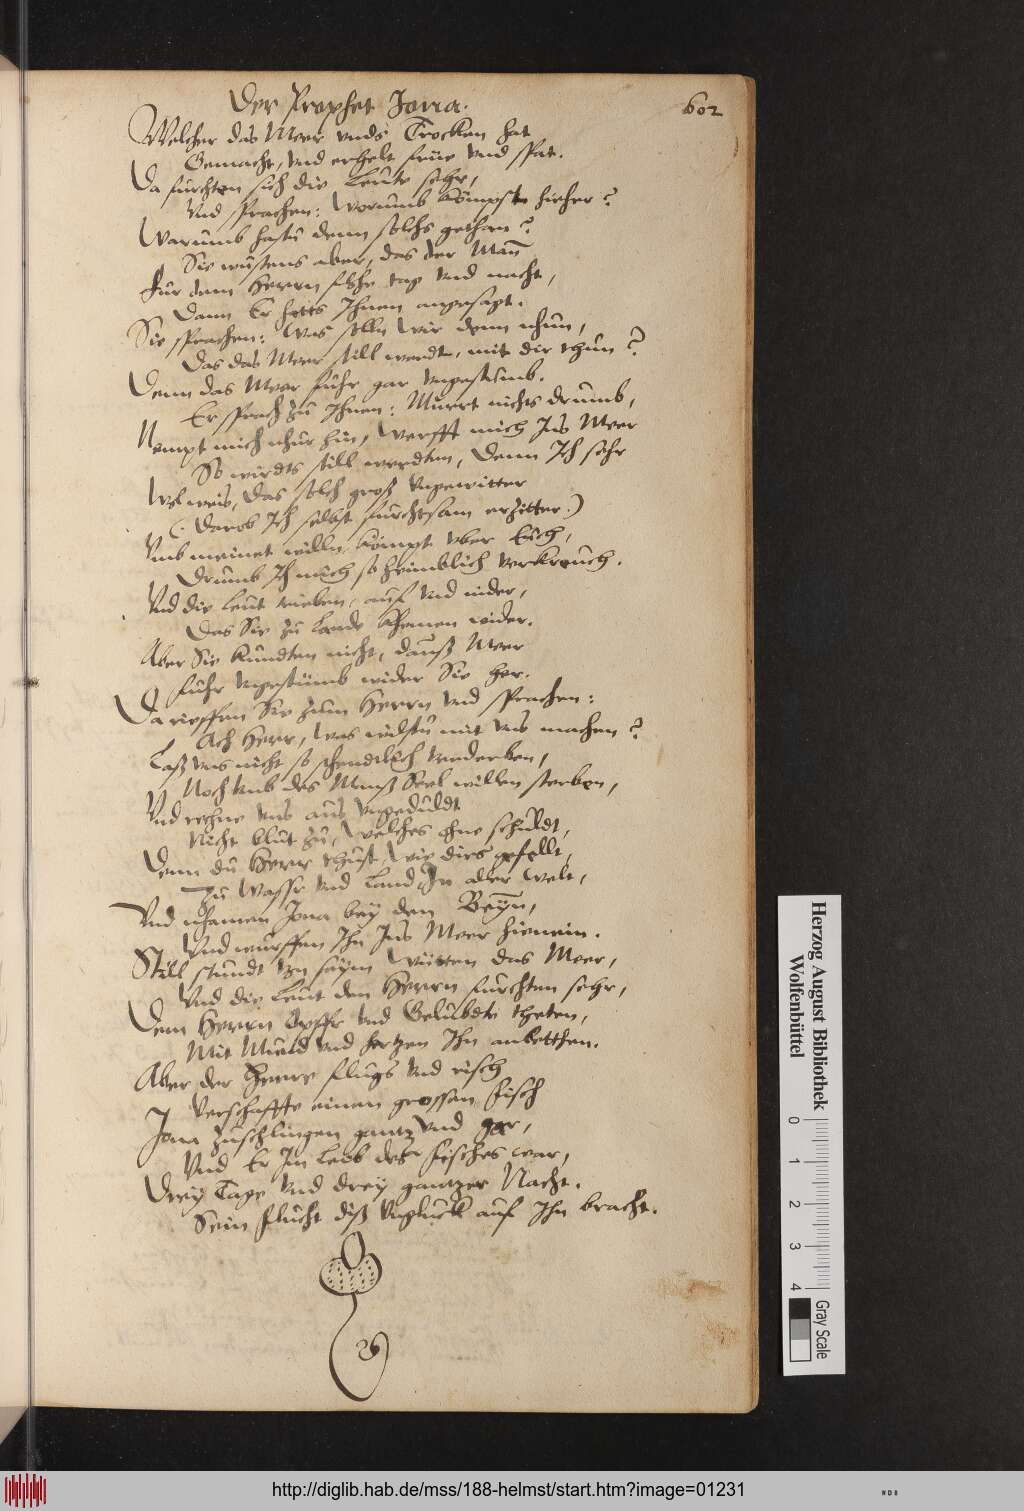 Der Prophet Jona.
602
Welcher das Meer vnds Trocken hat
Gemacht, vnd erhelt früe vnd spat.
Da furchten sich die Leute sehr,
Vnd sprachen: Worumb kömpstu hieher?
Warumb hastu denn solchs gethan?
Sie wustens aber, das der Man̄
Für dem Herrn flöhe tag vnd nacht,
Dann Er hetts Ihnen angesagt.
Sie sprachen: Was solln Wir denn nhun,
Das das Meer still werdt, mit dir thun?
Denn das Meer fuhr gar vngestumb.
Er sprach zu Ihnen: Murrt nichts drumb,
Nempt mich nhur hin, Werfft mich Ins Meer
So wirdts still werden, Denn Ich sehr
Wol weis, Das solch groß Vngewitter
(: Darob Ich selbst furchtsam erzitter:)
Vmb meinet willn kömpt vber Euch,
Drumb Ich mich so heimblich verkreuch.
Vnd die Leut trieben, auf vnd nider,
Das Sie zu Lande khemen wider.
Aber Sie kundten nicht, dauß Meer
Fuhr vngestümb wider Sie her.
Da rieffen Sie zum Herrn vnd sprachen:
Ach Herr, Was wiltu mit vns machen?
Laß vns nicht so schendtlich verderben,
Noch vmb des Manß Seel willen sterben,
Vnd rechne vns aus vngeduldt
Nicht blut zu, Welches ohne schuldt,
Denn du Herr thust, Wie dirs gefellt,
Zu Wasser vnd Land In aller Welt,
Vnd nhamen Jona bey den Beyn,
Vnd wurffen Ihn Ins Meer hienein.
Still stundt von seym Wütten das Meer,
Vnd die Leut den Herrn furchten sehr,
Dem Herrn Opffr vnd Gelübdte theten,
Mit Mund vnd hertzen Ihn anbetthen.
Aber der Herre flugs vnd risch
Verschaffte einen grossen Fisch
Jona zuschlingen gantz vnd gar,
Vnd Er Im Leib des Fisches war,
Drey Tage vnd drey gantzer Nacht.
Sein flucht diß Vngluck auf Ihn bracht.
Herzog August Bibliothek
Wolfenbüttel
0 1 2 3 4
Gray Scale
http://diglib.hab.de/mss/188-helmst/start.htm?image=01231